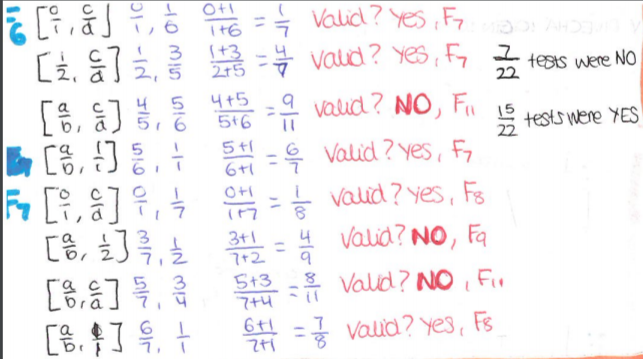 F6 [0/1, c/d] 0/1, 1/6 0+1/1+6 = 1/7 Valid? Yes, F7
[1/2, c/d] 1/2, 3/5 1+3/2+5 = 4/7 Valid? Yes, F7 7/22 tests were NO
[a/b, c/d] 4/5, 5/6 4+5/5+6 = 9/11 Valid? NO, F11 15/22 tests were YES
[a/b, 1/1] 5/6, 1/1 5+1/6+1 = 6/7 Valid? Yes, F7
F7 [0/1, c/d] 0/1, 1/7 0+1/1+7 = 1/8 Valid? Yes, F8
[a/b, 1/2] 3/7, 1/2 3+1/7+2 = 4/9 Valid? NO, F9
[a/b, c/d] 5/7, 3/4 5+3/7+4 = 8/11 Valid? NO, F11
[a/b, 1/1] 6/7, 1/1 6+1/7+1 = 7/8 Valid? Yes, F8